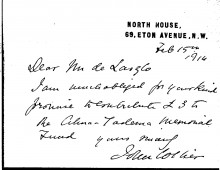 NORTH HOUSE,
69, ETON AVENUE, N.W.
Feb 15th
1914
Dear Mr de Laszlo
I am much obliged for your kind
promise to contribute £ 5 to
the Alma-Tadema Memorial
Fund yours sincly
John Collier